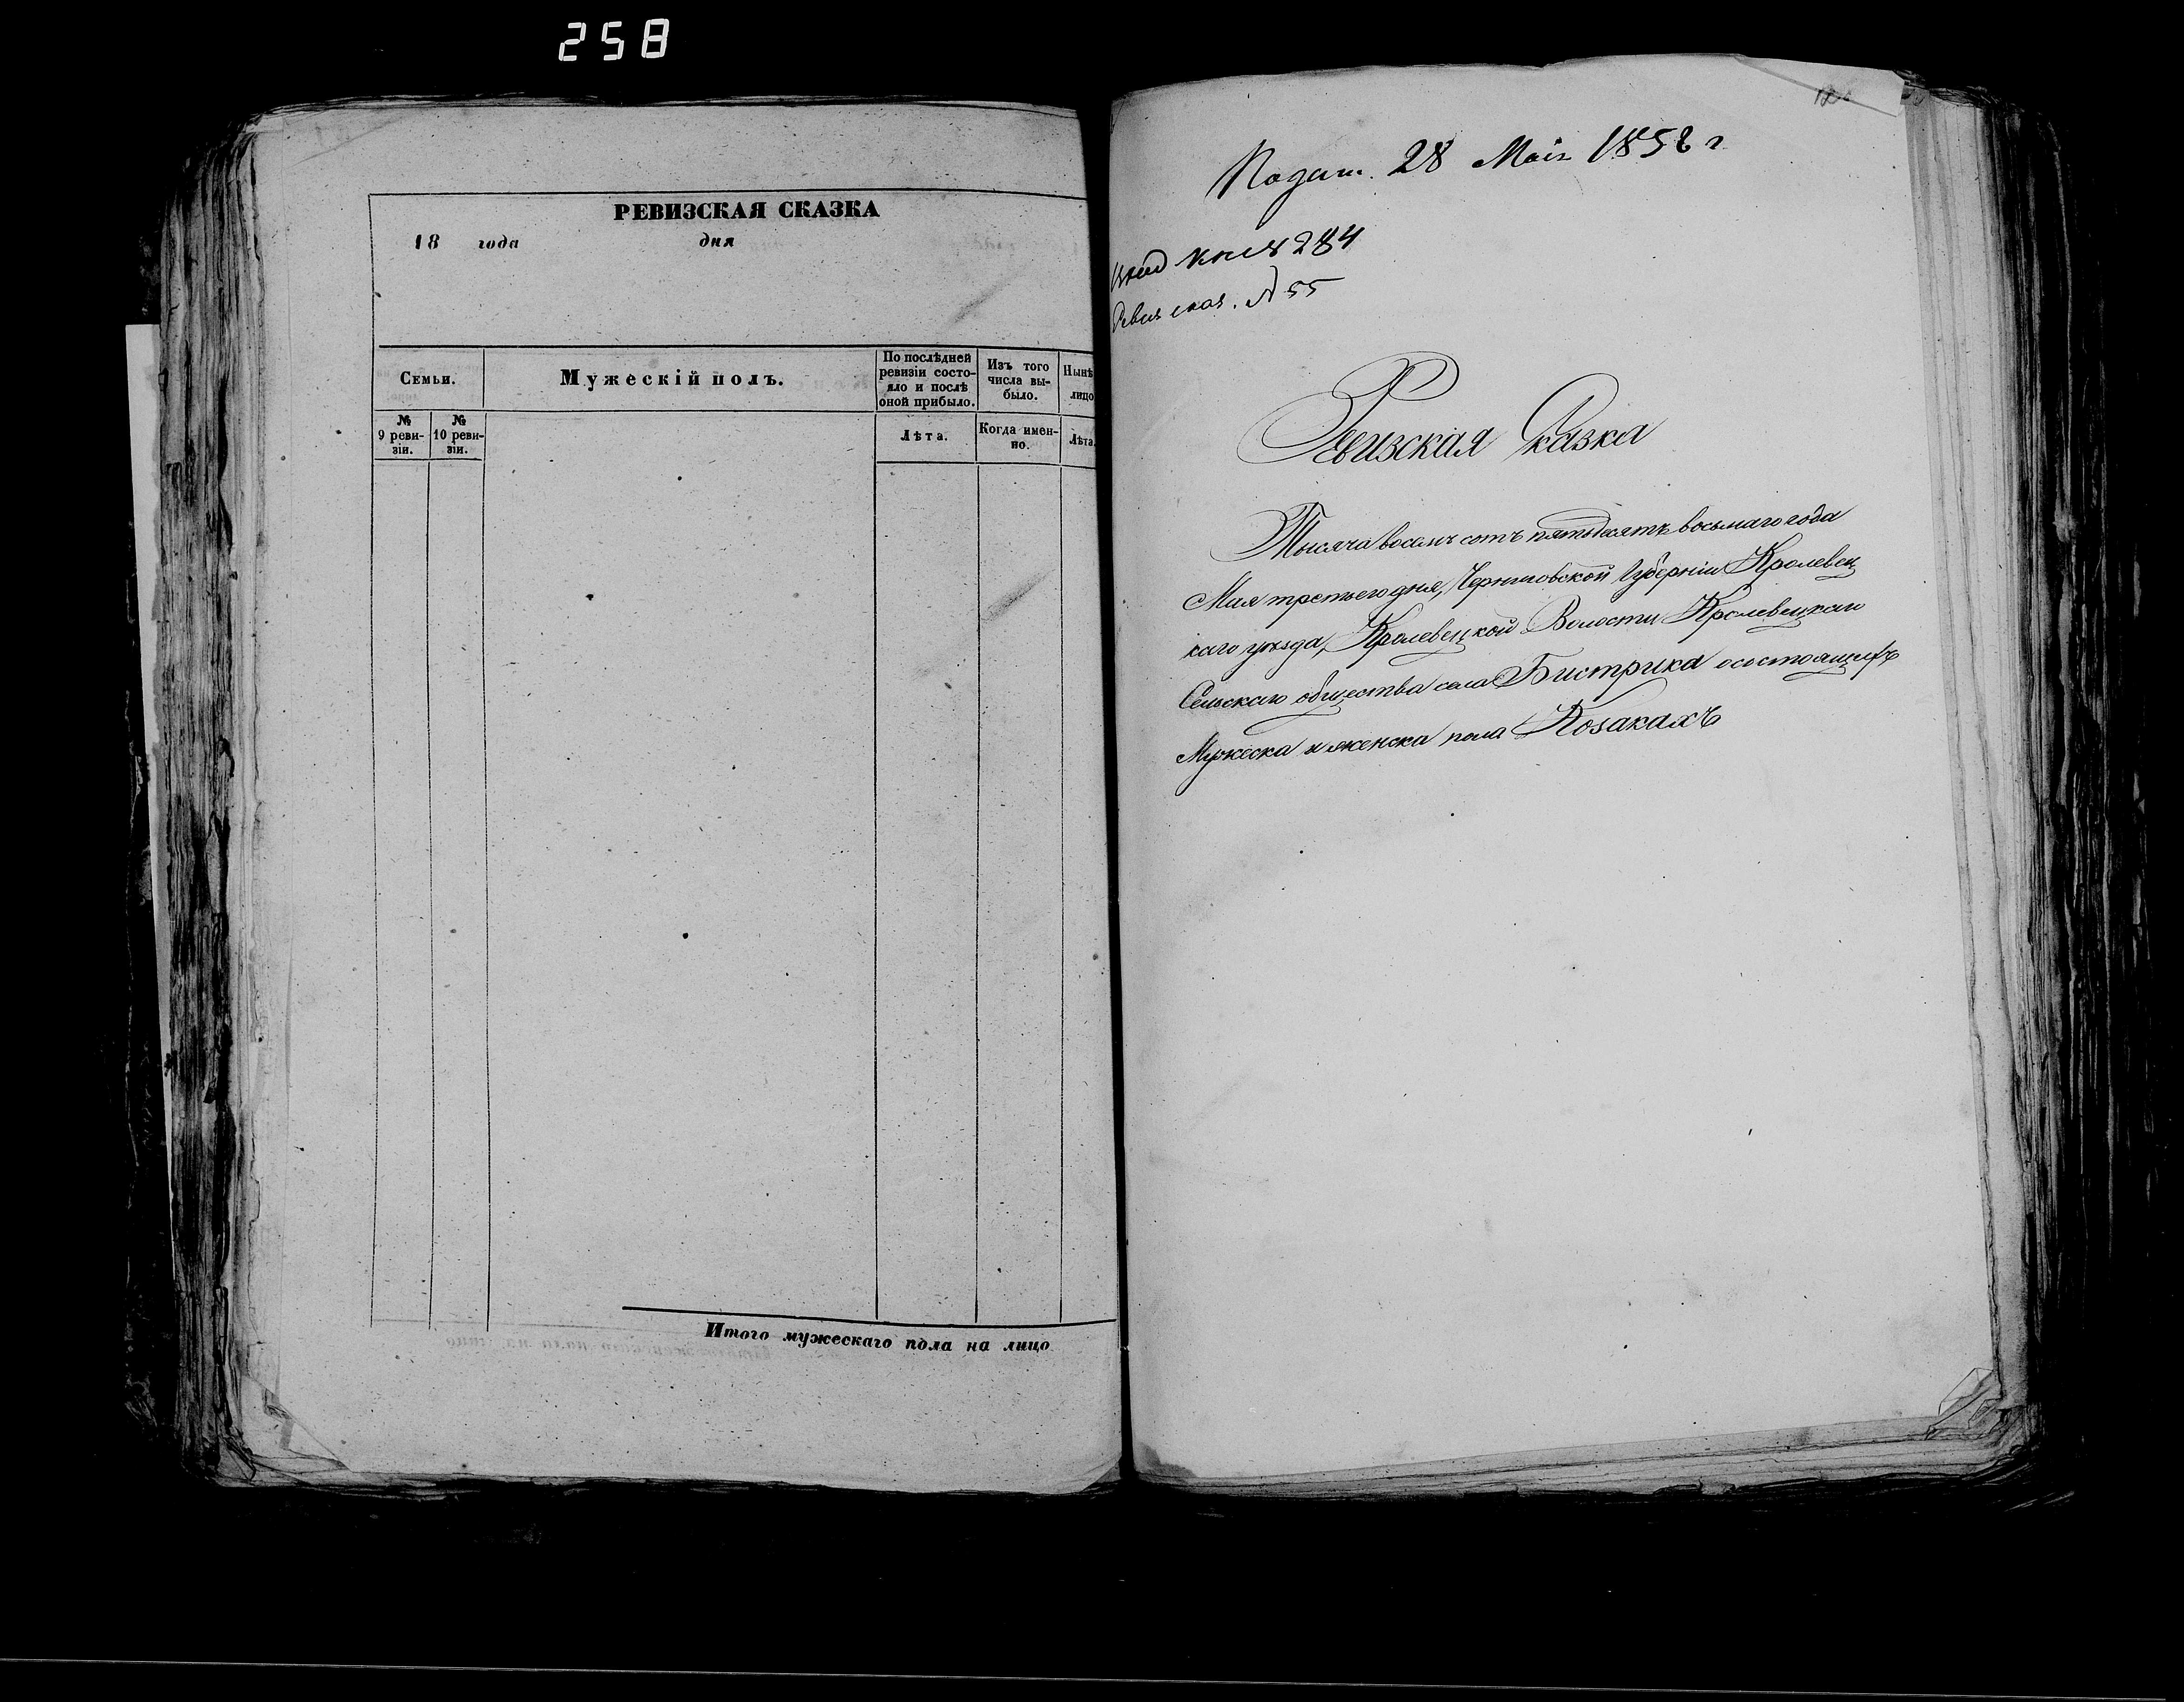 258
РЕВИЗСКАЯ СКАЗКА
18 года дня
Семьи.
Мужескій полъ.
По послѣдней ревизіи состояло и послѣ оной прибыло.
Изъ того числа выбыло.
Нынѣ
лицо
№ 9 ревизіи.
№ 10 ревизіи.
Лѣта.
Когда именно.
Лѣта
Итого мужескаго пола на лицо
Подан. 28 Маія 1858 г
284
Ревиз сказ. № 55
Ревизская Сказка
Тысяча восемъ сотъ пятьдесятъ восьмаго года
Мая третьего дня, Черниговской Губерніи Кролевец
каго уѣзда, Кролевецкой Волости Кролевецкаго
Сельскаго общества села Бистрика осостоящихъ
Мужеска и женска пола Козакахъ